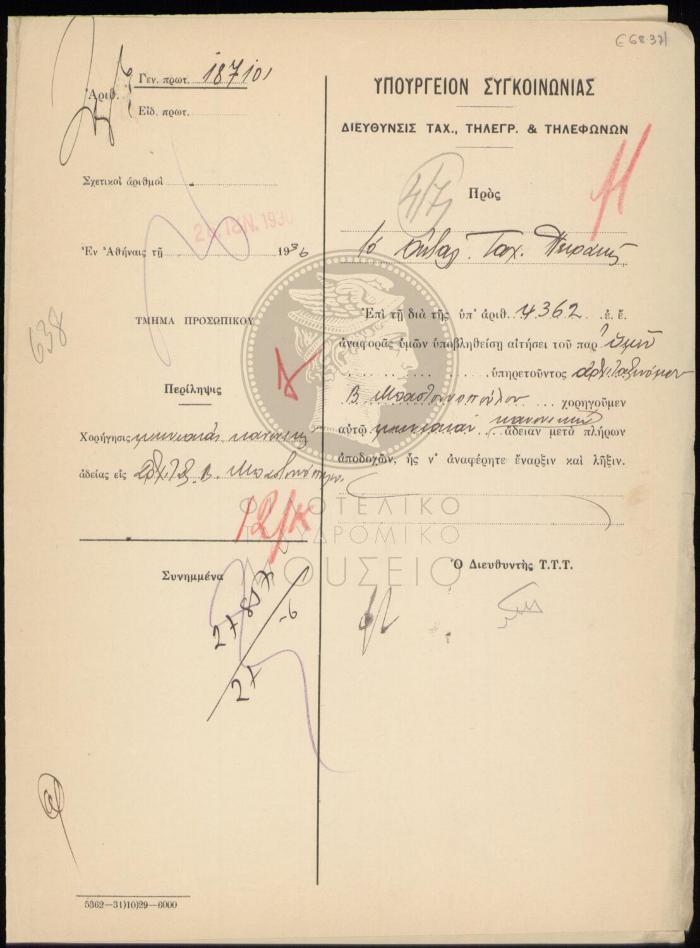 Ε68.37
Ἀριθ.
Γεν. πρωτ. 18710
Εἰδ. πρωτ.
Σχετικοὶ ἀριθμοί
ΙΑΝ. 193
Ἐν Ἀθήναις τῇ 1936
638
ΤΜΗΜΑ ΠΡΟΣΩΠΙΚΟΥ
Περίληψις
Χορήγησις μηνιαίας κανονικῆς
ἀδείας εἰς Β.
12/
Συνημμένα
27857
27
-6
5362—31)10)29—6000
ΥΠΟΥΡΓΕΙΟΝ ΣΥΓΚΟΙΝΩΝΙΑΣ
ΔΙΕΥΘΥΝΣΙΣ ΤΑΧ., ΤΗΛΕΓΡ. & ΤΗΛΕΦΩΝΩΝ
4/7
11
Πρὸς
Ταχ. Πειραιῶς
Ἐπὶ τῇ διὰ τῆς ὑπ' ἀριθ. 4362 ἐ. ἔ.
ἀναφορᾶς ὑμῶν ὑποβληθείσῃ αἰτήσει τοῦ παρ' ὑμῖν
ὑπηρετοῦντος ἀρχιταξινόμου
Β. χορηγοῦμεν
αὐτῷ μηνιαίαν κανονικὴν ἄδειαν μετὰ πλήρων
ἀποδοχῶν, ἧς ν' ἀναφέρητε ἔναρξιν καὶ λῆξιν.
Ὁ Διευθυντὴς Τ.Τ.Τ.
ΦΙΛΟΤΕΛΙΚΟ
ΤΑΧΥΔΡΟΜΙΚΟ
ΜΟΥΣΕΙΟ